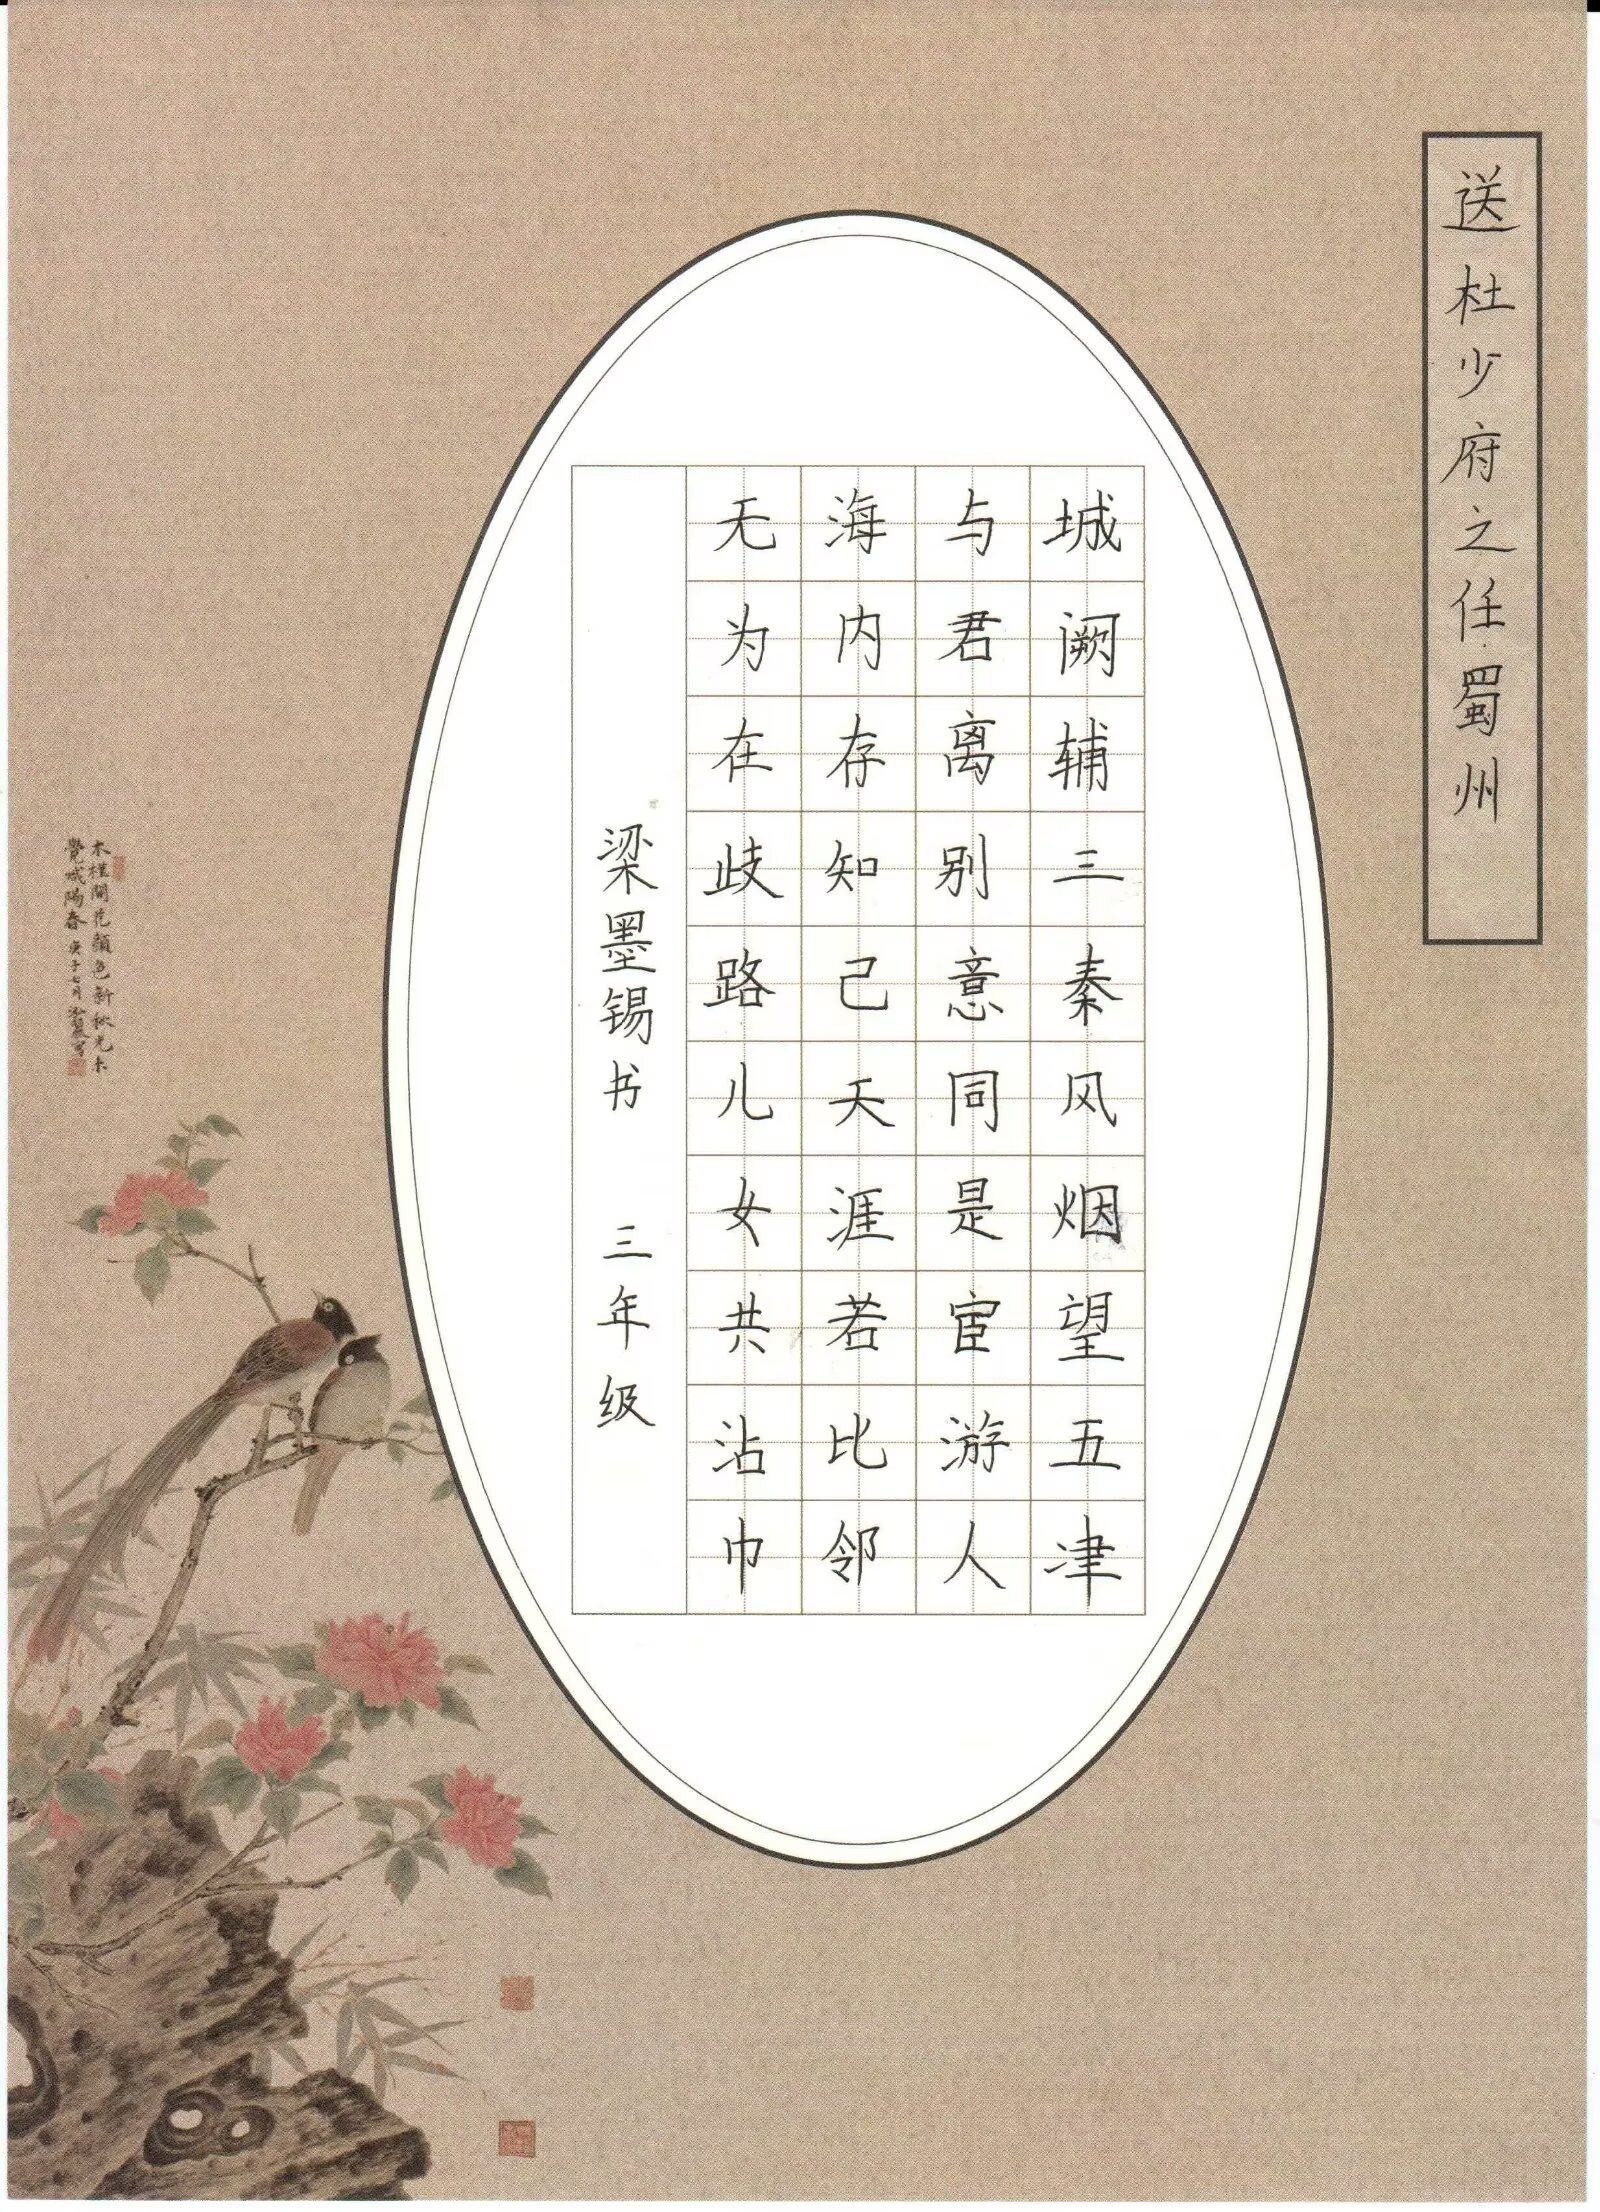 送杜少府之任蜀州
城阙辅三秦风烟望五津
与君离别意同是宦游人
海内存知己天涯若比邻
无为在歧路儿女共沾巾
梁墨锡书 三年级
木槿開花顏色新秋光未
覺減陽春 庚子七月